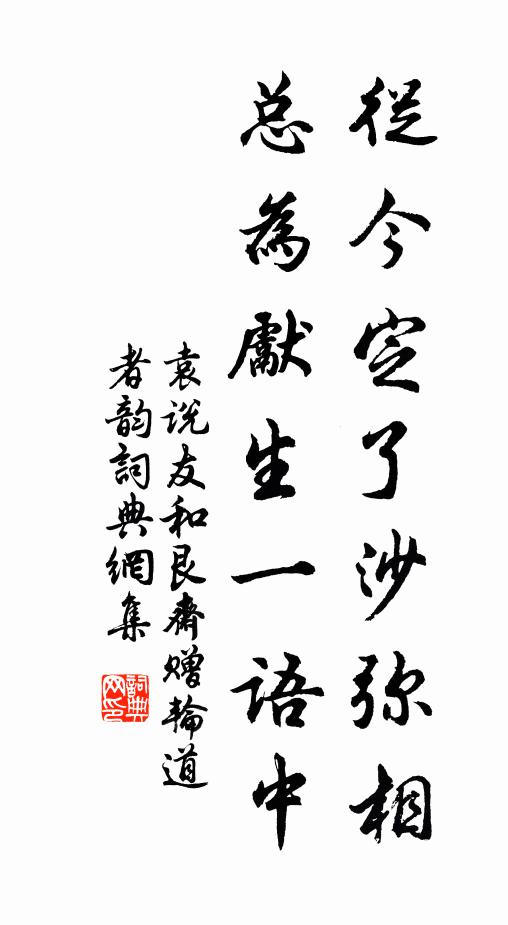 從今定了沙弥相
总為獻生一语中
袁说友和艮齋赠輪道
者韵詞典網集
詞典
网印